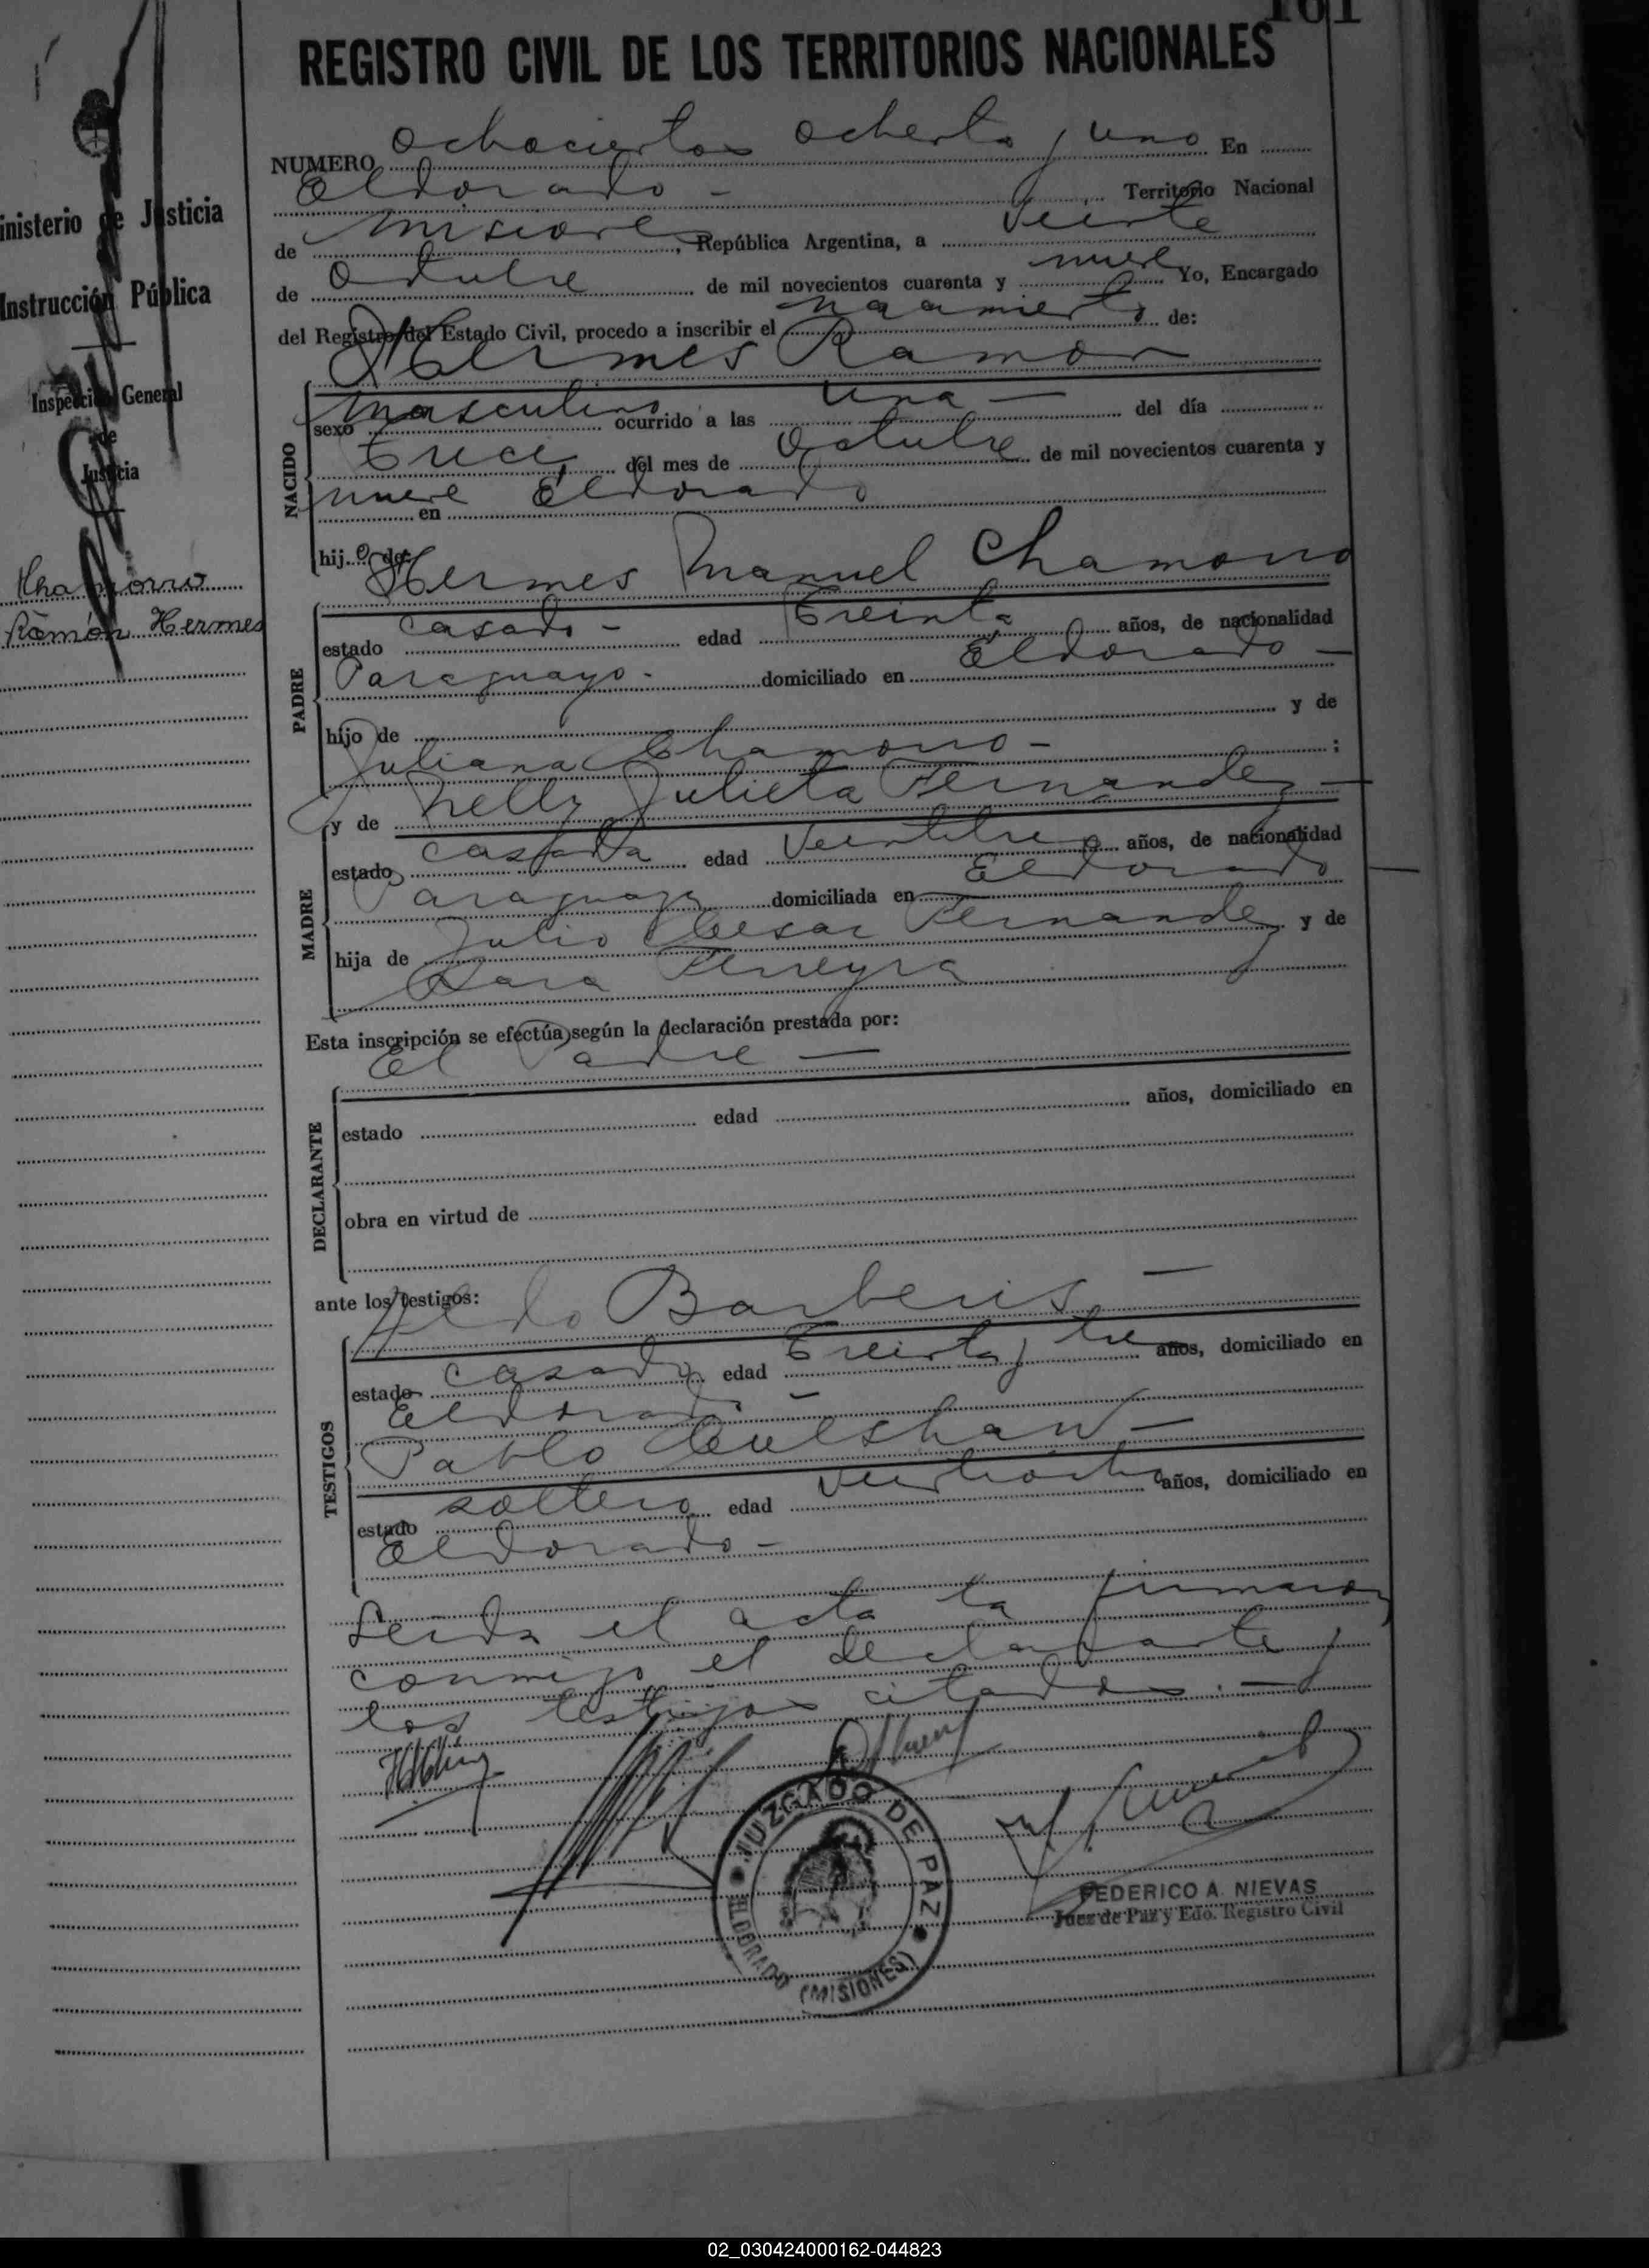 161
REGISTRO CIVIL DE LOS TERRITORIOS NACIONALES
NUMERO ochocientos ochenta y uno En
Eldorado - Territorio Nacional
de Misiones, República Argentina, a veinte
de Octubre de mil novecientos cuarenta y nueve Yo, Encargado
del Registro del Estado Civil, procedo a inscribir el nacimiento de:
Hermes Ramon
NACIDO
sexo masculino ocurrido a las una — del día
trece del mes de Octubre de mil novecientos cuarenta y
nueve en Eldorado
hijo de: Hermes Manuel Chamorro
PADRE
estado casado - edad treinta años, de nacionalidad
Paraguayo - domiciliado en Eldorado -
hijo de y de
Juliana Chamorro - ;
MADRE
y de Nelly Julieta Fernandez
estado casada edad veintitres años, de nacionalidad
Paraguaya domiciliada en Eldorado
hija de Julio Cesar Fernandez y de
Sara Ferreyra
Esta inscripción se efectúa según la declaración prestada por:
El Padre —
DECLARANTE
estado edad años, domiciliado en
obra en virtud de
ante los testigos: Aldo Barberis —
TESTIGOS
estado casado edad treinta y tres años, domiciliado en
Eldorado -
Pablo Culshaw -
estado soltero edad veintiocho años, domiciliado en
Eldorado -
Leida el acta la firmaron
conmigo el declarante y
los testigos citados. —
JUZGADO DE PAZ
ELDORADO (MISIONES)
FEDERICO A. NIEVAS
Juez de Paz y Edo. Registro Civil
inisterio de Justicia
Instrucción Pública
Inspección General
de
Justicia
Chamorro
Ramón Hermes
02_030424000162-044823